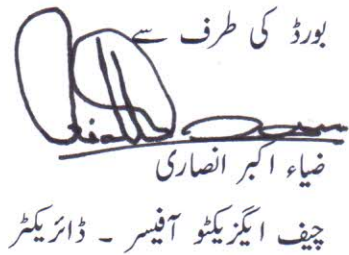 بورڈ کی طرف سے
ضیاء اکبر انصاری
چیف ایگزیکٹو آفیسر ۔ ڈائریکٹر